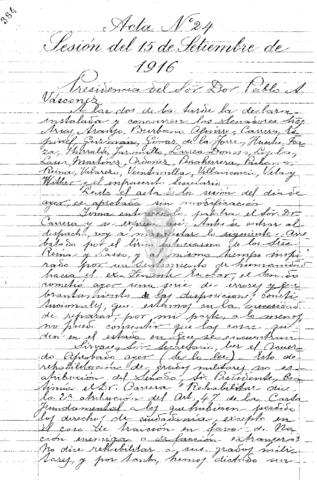 384
Acta N.º 24
Sesión del 15 de Setiembre de
1916
Presidencia del Sór. Dor. Pablo A.
Vascones
A las dos de la tarde la declara
instalada y concurren los Senadores Srs.
Arias, Araujo, Burbano Aguirre, Carrera, Es
pinel, Guzmán, Gómez de la Torre,
Iturralde, Jaramillo, Larrea Donoso,
Martínez, Ordóñez, Peñaherrera,
Reina, Valarezo, Ventimilla, Villavicencio, Vela y
y el infrascrito Secretario
Leída el acta de la sesión del día de
ayer, es aprobada sin modificación
Toma entonces la palabra el Sór. Dr.
Carrera y se expresa así: Antes de entrar al
despacho, voy a manifestar lo siguiente:
batado por el lirismo de los Srs.
Reina y Lasso, y al mismo tiempo inspi
rado por un sentimiento de humanidad
hacia el ex Teniente el Senado
cometió ayer una serie de errores y que
brantamiento de las disposiciones consti
tucionales, que estamos en la necesidad
de reparar; por mi parte, a lo menos,
no puedo consentir que las cosas que
den en el estado en que se encuentran.
Sírvase, Sór. Secretario, leer el Acuer
do aprobado ayer (se lo lee). Esto de
rehabilitación de grados militares no es
atribución del Senado, Sór. Presidente, Con
tinúa el Dr. Carrera. Rehabilitar dice
la 2ª atribución del Art. 47 de la Carta
Fundamental a los que hubieren perdido
los derechos de ciudadanía, excepto en
el caso de traición en favor de Na
ción enemiga o de facción extranjera.
No dice rehabilitar a sus grados mili
tares, y por tanto, hemos dictado un